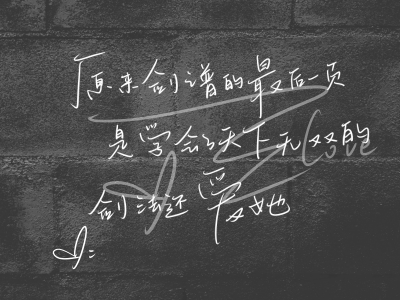 原来剑谱的最后一页
是学会了天下无双的
剑法还爱她
Love